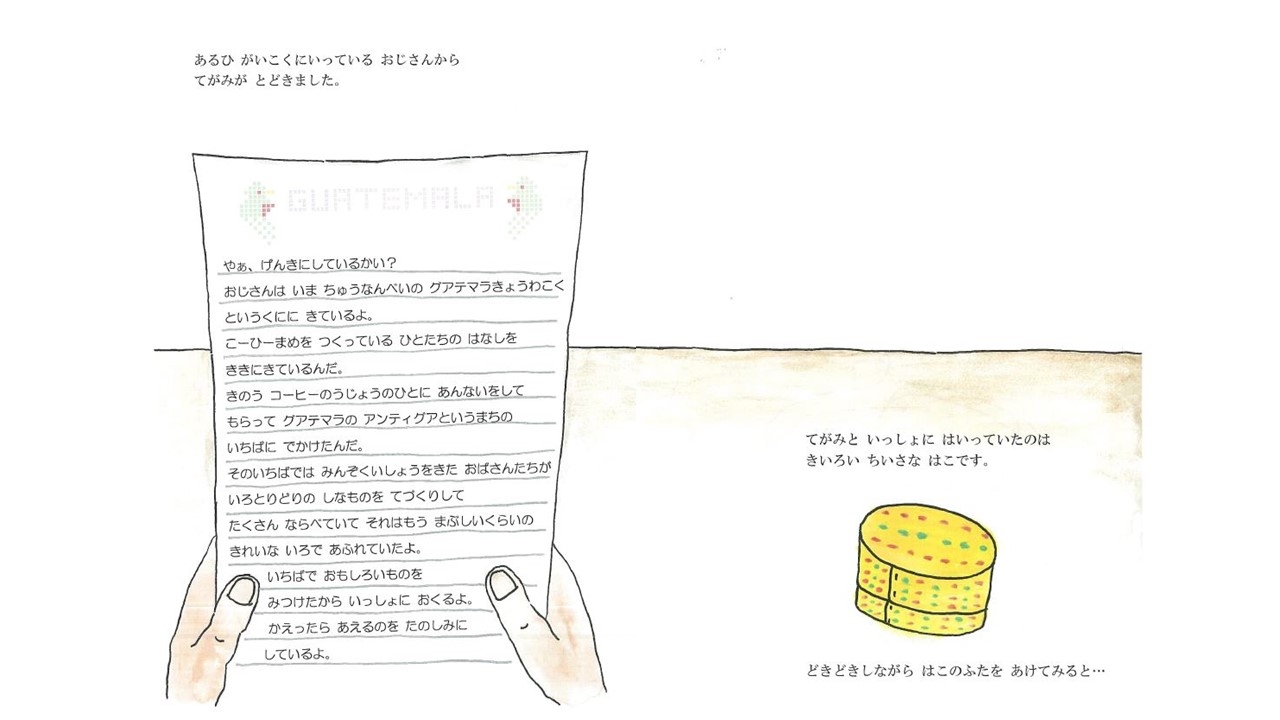 あるひ がいこくにいっている おじさんから
てがみが とどきました。
GUATEMALA
やぁ、げんきにしているかい？
おじさんは いま ちゅうなんべいの グアテマラきょうわこく
というくにに きているよ。
こーひーまめを つくっている ひとたちの はなしを
ききにきているんだ。
きのう コーヒーのうじょうのひとに あんないをして
もらって グアテマラの アンティグアというまちの
いちばに でかけたんだ。
そのいちばでは みんぞくいしょうをきた おばさんたちが
いろとりどりの しなものを てづくりして
たくさん ならべていて それはもう まぶしいくらいの
きれいな いろで あふれていたよ。
いちばで おもしろいものを
みつけたから いっしょに おくるよ。
かえったら あえるのを たのしみに
しているよ。
てがみと いっしょに はいっていたのは
きいろい ちいさな はこです。
どきどきしながら はこのふたを あけてみると…